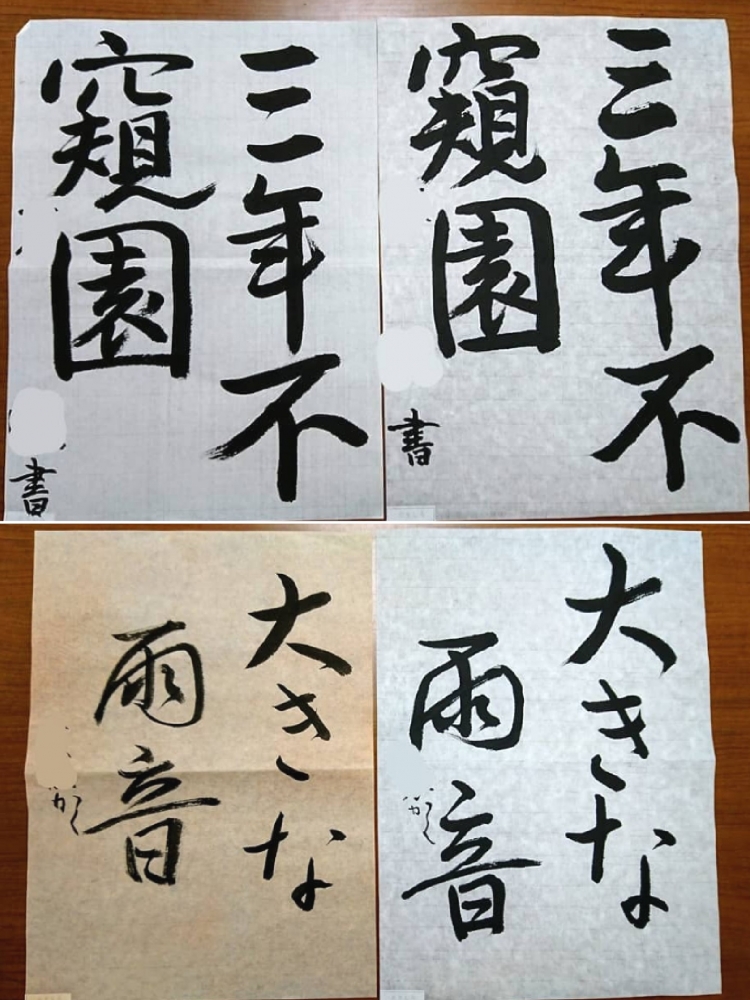 三年不
窺園
書
三年不
窺園
書
大きな
雨音
大きな
雨音